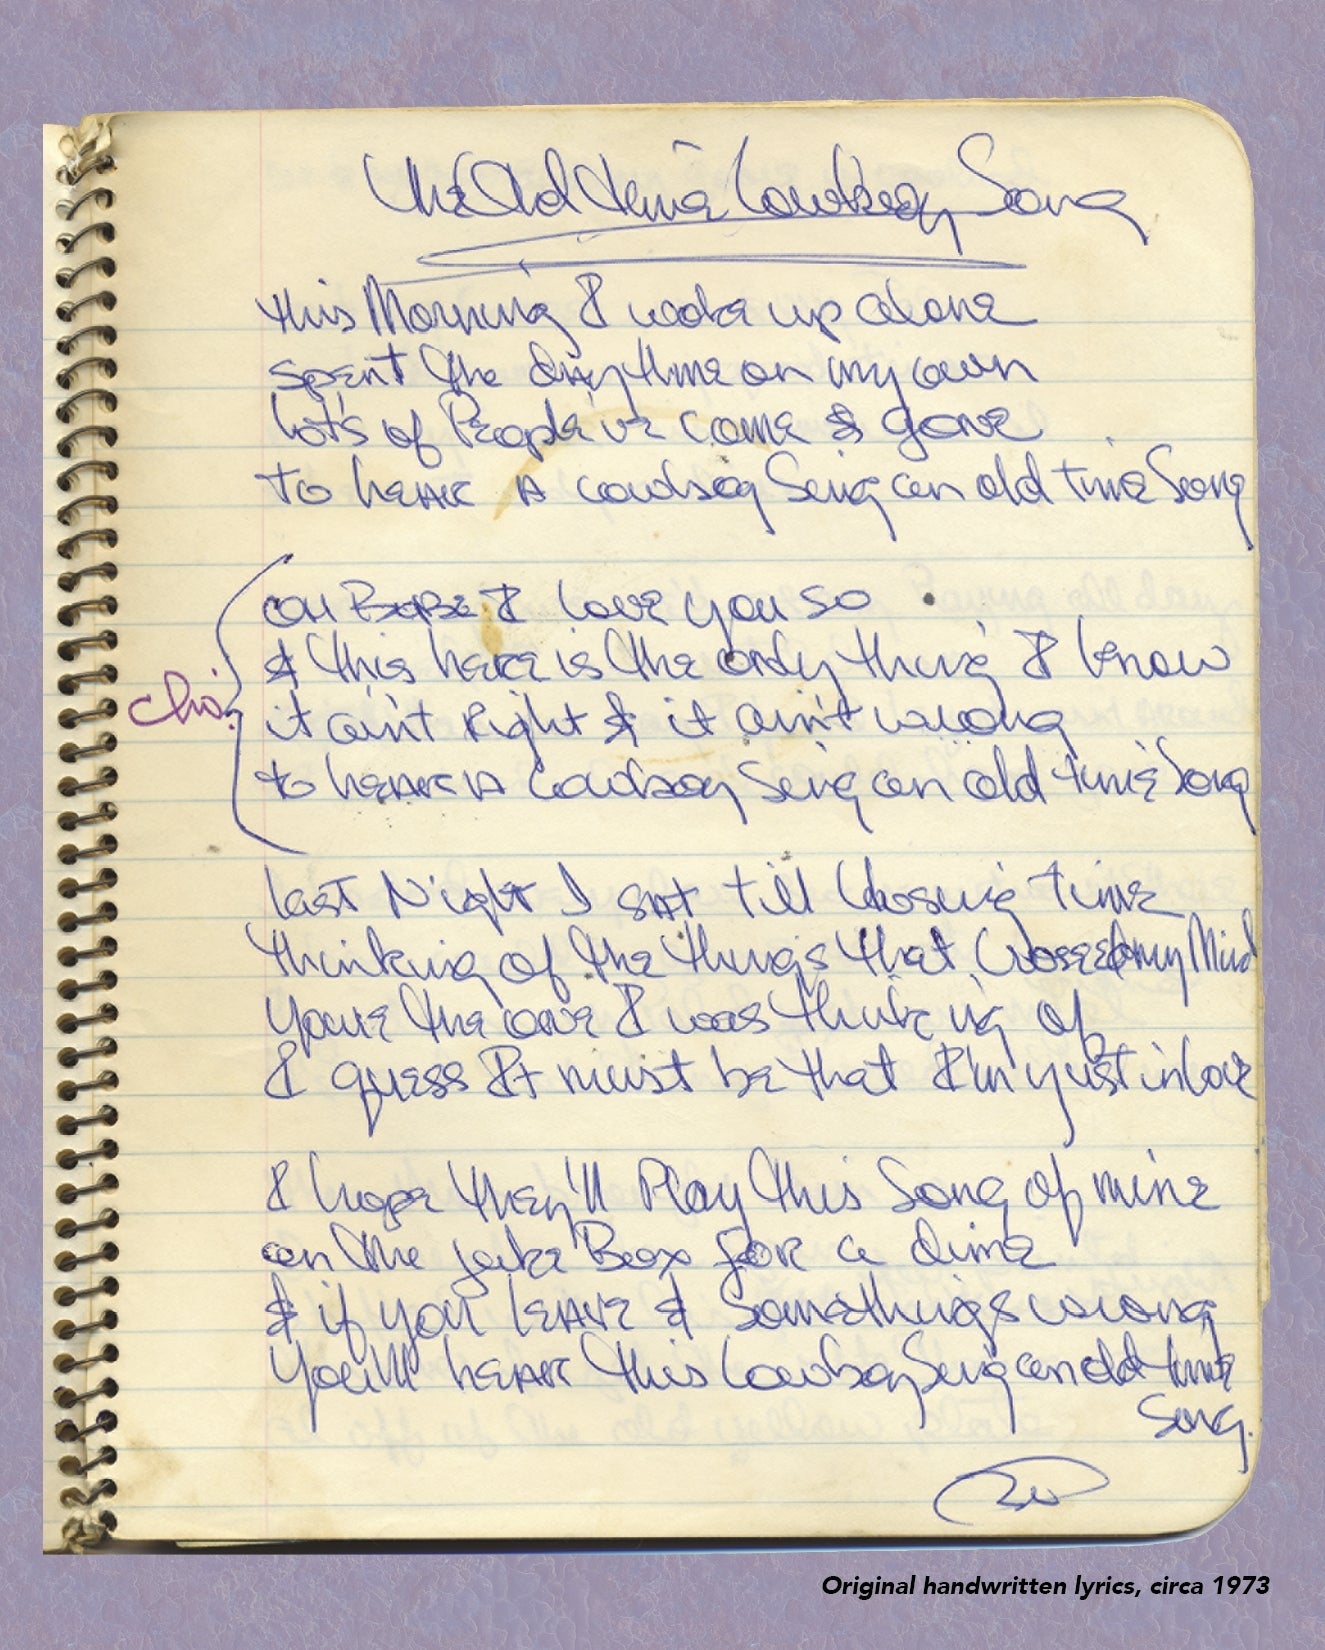 The Old Time Cowboy Song
this Morning I woke up alone
spent the daytime on my own
lot's of People've come & gone
to hear A cowboy Sing an old time Song
oh Babe I love you so
& this here is the only thing I know
it ain't Right & it ain't wrong
to hear A Cowboy Sing an old time Song
cho.
last Night I sat till Closing time
thinking of the things that Crossed my Mind
youre the one I was thinking of
I guess It must be that I'm just in love
I hope they'll Play this Song of mine
on the juke Box for a dime
& if you leave & Somethings wrong
You'll hear this Cowboy Sing an old time
Song.
Original handwritten lyrics, circa 1973